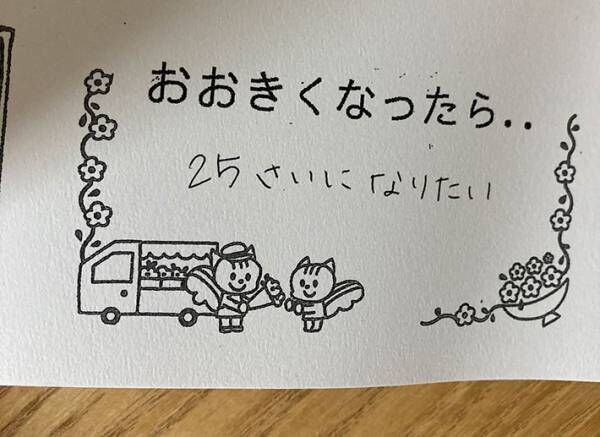 おおきくなったら..
25さいになりたい